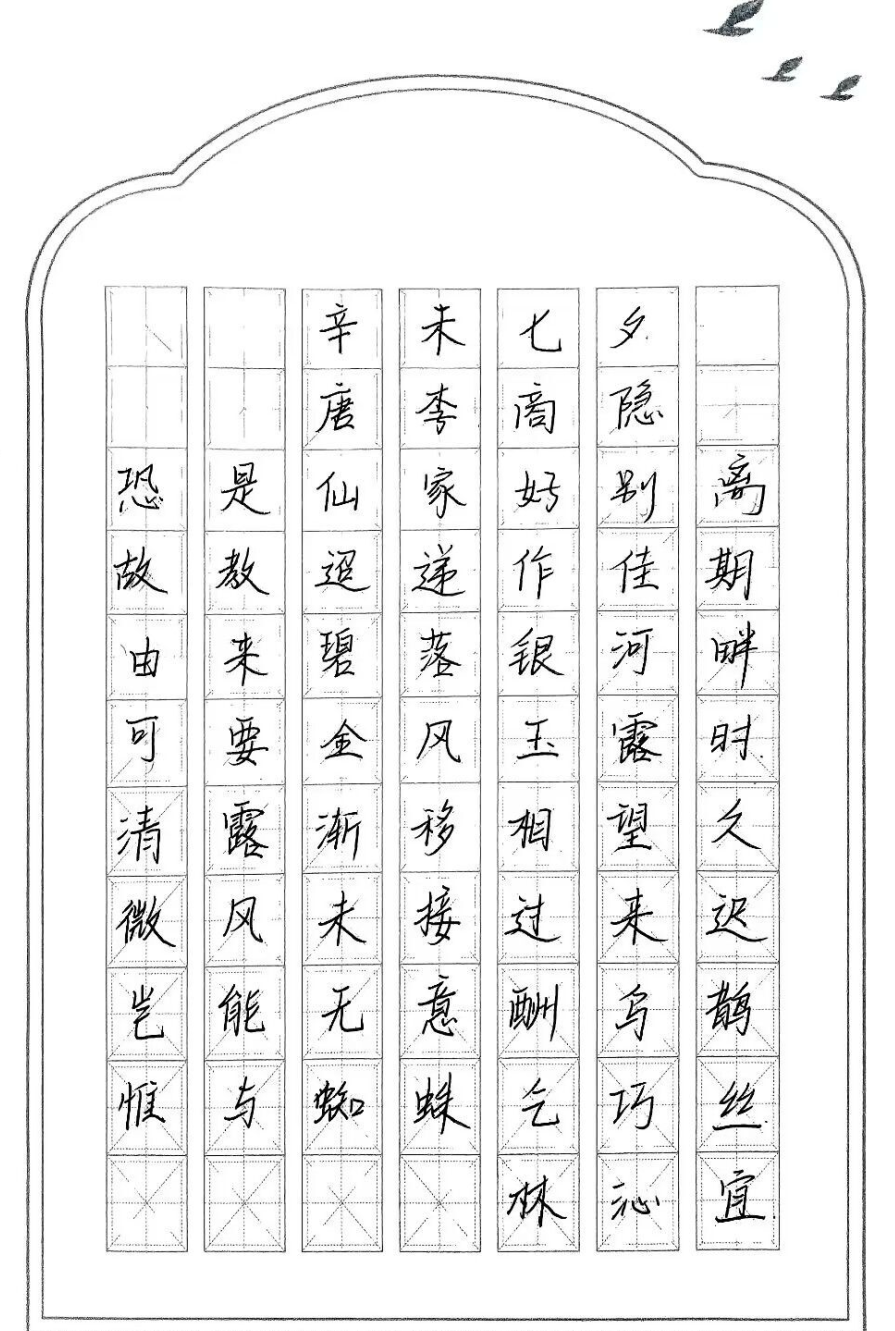 辛未七夕
唐李商隐
恐是仙家好别离
故教迢递作佳期
由来碧落银河畔
可要金风玉露时
清露渐移相望久
微风未接过来迟
岂能无意酬乌鹊
惟与蜘蛛乞巧丝
林沁宜